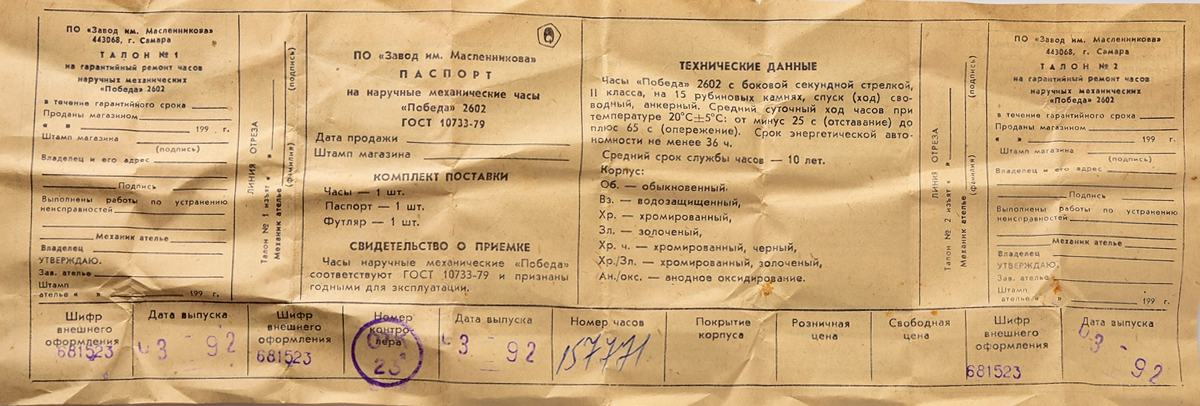 ПО «Завод им. Масленникова»
443068, г. Самара
ТАЛОН № 1
на гарантийный ремонт часов
наручных механических
«Победа» 2602
в течение гарантийного срока
Проданы магазином
« » 199 г.
Штамп магазина
(подпись)
Владелец и его адрес
Подпись
Выполнены работы по устранению
неисправностей
Механик ателье
Владелец
УТВЕРЖДАЮ.
Зав. ателье
Штамп
ателье « » 199 г.
ЛИНИЯ ОТРЕЗА
Талон № 1 изъят « »
Механик ателье
(фамилия)
(подпись)
ПО «Завод им. Масленникова»
ПАСПОРТ
на наручные механические часы
«Победа» 2602
ГОСТ 10733-79
Дата продажи
Штамп магазина
КОМПЛЕКТ ПОСТАВКИ
Часы — 1 шт.
Паспорт — 1 шт.
Футляр — 1 шт.
СВИДЕТЕЛЬСТВО О ПРИЕМКЕ
Часы наручные механические «Победа»
соответствуют ГОСТ 10733-79 и признаны
годными для эксплуатации.
ТЕХНИЧЕСКИЕ ДАННЫЕ
Часы «Победа» 2602 с боковой секундной стрелкой,
II класса, на 15 рубиновых камнях, спуск (ход) сво-
водный, анкерный. Средний суточный ход часов при
температуре 20°С±5°С: от минус 25 с (отставание) до
плюс 65 с (опережение). Срок энергетической авто-
номности не менее 36 ч.
Средний срок службы часов — 10 лет.
Корпус:
Об. — обыкновенный.
Вз. — водозащищенный,
Хр. — хромированный,
Зл. — золоченый,
Хр. ч. — хромированный, черный,
Хр./Зл. — хромированный, золоченый,
Ан./окс. — анодное оксидирование.
ЛИНИЯ ОТРЕЗА
Талон № 2 изъят « »
Механик ателье
(фамилия)
(подпись)
ПО «Завод им. Масленникова»
443068, г. Самара
ТАЛОН № 2
на гарантийный ремонт часов
наручных механических
«Победа» 2602
в течение гарантийного срока
Проданы магазином
« » 199 г.
Штамп магазина
(подпись)
Владелец и его адрес
Подпись
Выполнены работы по устранению
неисправностей
Механик ателье
Владелец
УТВЕРЖДАЮ.
Зав. ателье
Штамп
ателье « » 199 г.
Шифр
внешнего
оформления
681523
Дата выпуска
03 - 92
Шифр
внешнего
оформления
681523
Номер
контро-
лера
23
Дата выпуска
03 - 92
Номер часов
157771
Покрытие
корпуса
Розничная
цена
Свободная
цена
Шифр
внешнего
оформления
681523
Дата выпуска
03 -
92